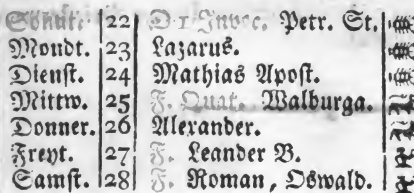 Sonnt. 22 D 1 Invoc. Petr. St.
Mondt. 23 Lazarus.
Dienst. 24 Mathias Apost.
Mittw. 25 F. Quat. Walburga.
Donner. 26 Alexander.
Freyt. 27 F. Leander B.
Samst. 28 F. Roman, Oswald.